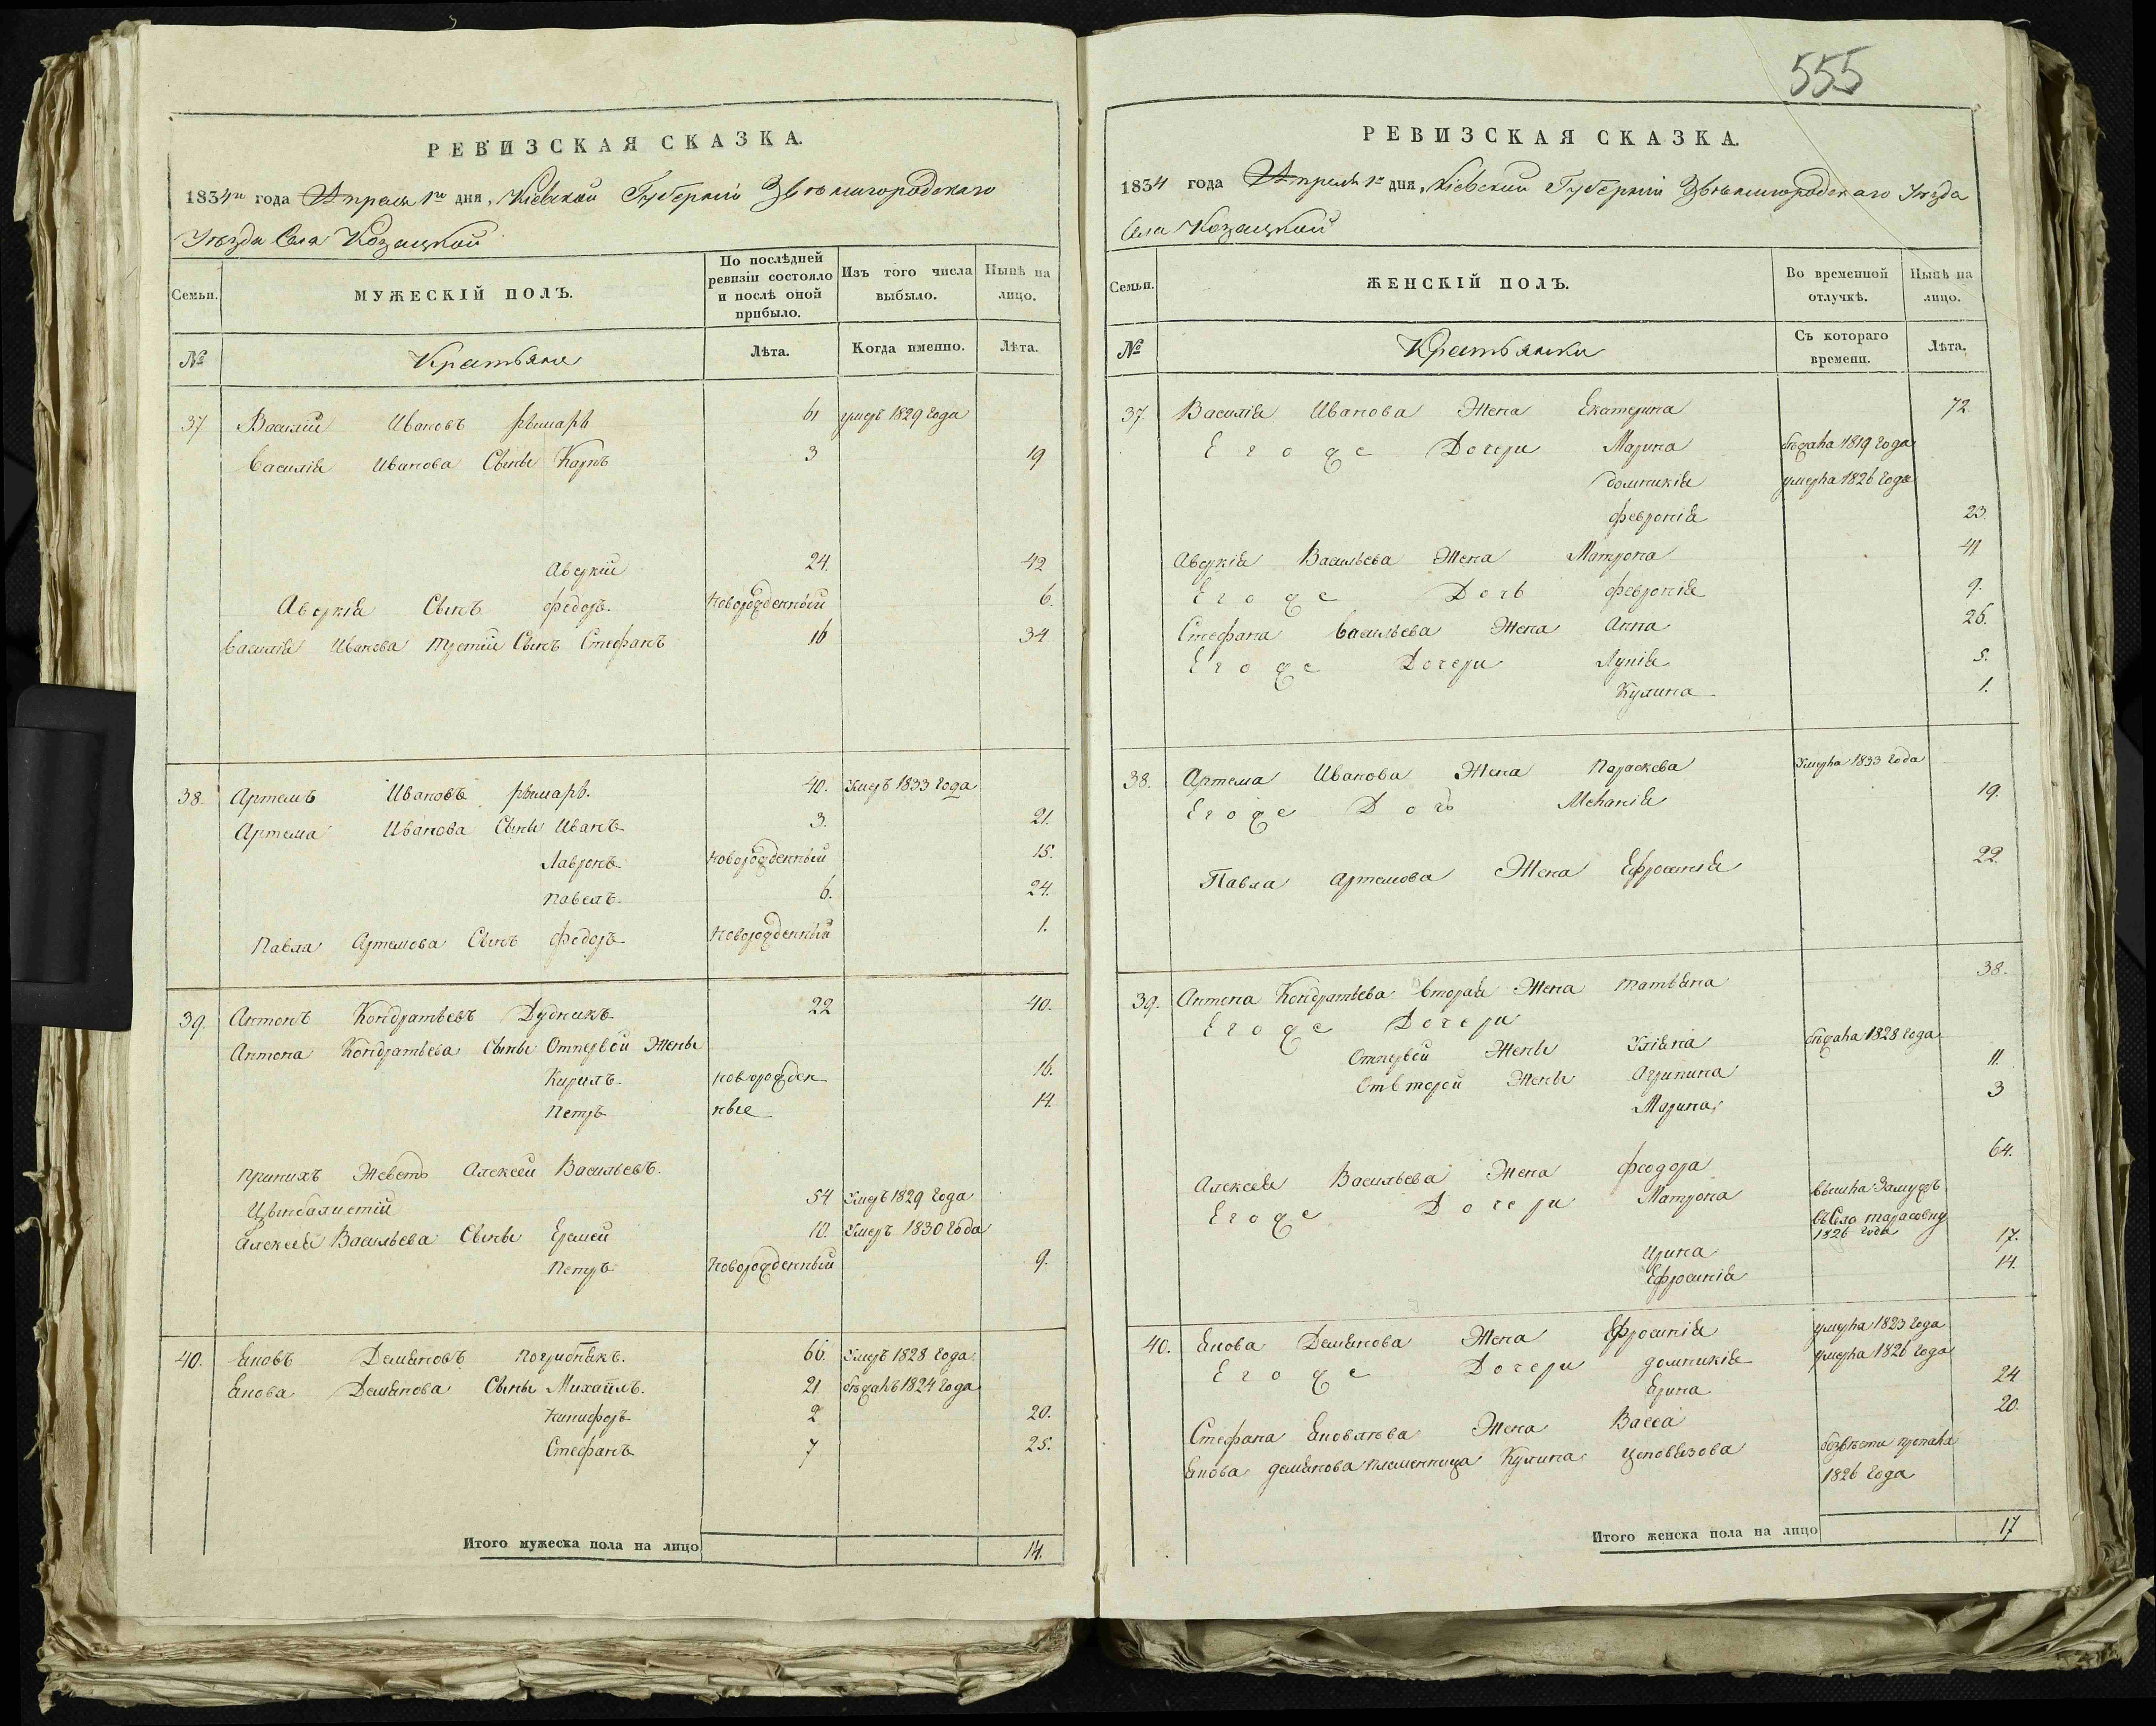 РЕВИЗСКАЯ СКАЗКА.
1834го года Апреля 1го дня, Кіевской Губерніи Звѣнигородскаго
Уѣзда Села Козацкой
Семьи.
МУЖЕСКІЙ ПОЛЪ.
По послѣдней ревизіи состояло и послѣ оной прибыло.
Изъ того числа выбыло.
Нынѣ на лицо.
№
Крестьяне
Лѣта.
Когда именно.
Лѣта.
37 Василій Ивановъ рымарь 61 умеръ 1829 года
Василія Иванова Сыны Карпъ 3 19
Аверкій 24. 42
Аверкія Сынъ Федоръ. новорожденный 6.
Василія Иванова третій Сынъ Стефанъ 16 34
38. Артемъ Ивановъ рымарь. 40. Умеръ 1833 года
Артема Иванова Сыны Иванъ 3. 21.
Лавронъ новорожденный 15.
Павелъ. 6. 24.
Павла Артемова Сынъ Федоръ новорожденный 1.
39. Антонъ Кондратьевъ Дудникъ 22 40.
Антона Кондратьева Сыны Отпервой Жены
Кирилъ. новорожден 16.
Петръ ные 14.
принихъ Живетъ Алексей Васильевъ.
Цымбалистій 54 Умеръ 1829 года
Алексея Васильева Сыны Еремей 10. Умеръ 1830 года
Петръ новорожденный 9.
40. Яковъ Демяновъ погрибнякъ. 66. Умеръ 1828 года
Якова Демянова Сыны Михайлъ. 21 бѣжалъ 1824 года
Никифоръ 2 20.
Стефанъ 7 25.
Итого мужеска пола на лицо 14.
555
РЕВИЗСКАЯ СКАЗКА.
1834 года Апреля 1го дня, Кіевской Губерніи Звѣнигородскаго Уѣзда
Села Козацкой
Семьи.
ЖЕНСКІЙ ПОЛЪ.
Во временной отлучкѣ.
Нынѣ на лицо.
№
Крестьянки
Съ котораго времени.
Лѣта.
37. Василія Иванова Жена Екатерина 72.
Егоже Дочери Марина бѣжала 1819 года
Домникія умерла 1826 года
Февронія 23.
Аверкія Васильева Жена Матрона 41
Егоже Дочь Февронія 9.
Стефана Васильева Жена Анна 26.
Егоже Дочери Лукія 5.
Кулина 1.
38. Артема Иванова Жена Параскева Умерла 1833 года
Егоже Дочь Меланія 19.
Павла Артемова Жена Ефросинія 22
39. Антона Кондратьева вторая Жена татьяна 38.
Егоже Дочери
Отпервой Жены Улияна бѣжала 1828 года
Отвторой Жены Агрипина 11.
Марина 3
Алексея Васильева Жена Феодора 64.
Егоже Дочери Матрона вышла Замужъ
въ Село тарасовку
1826 года
Ирина 17.
Ефросинія 14.
40. Якова Демянова Жена Ефросинія умерла 1823 года
Егоже Дочери Домникія умерла 1826 года
Ерина 24
Стефана Яковлѣва Жена Васса 20.
Якова Демянова племенница Кулина безвѣсти пропала
1826 года
Итого женска пола на лицо 17